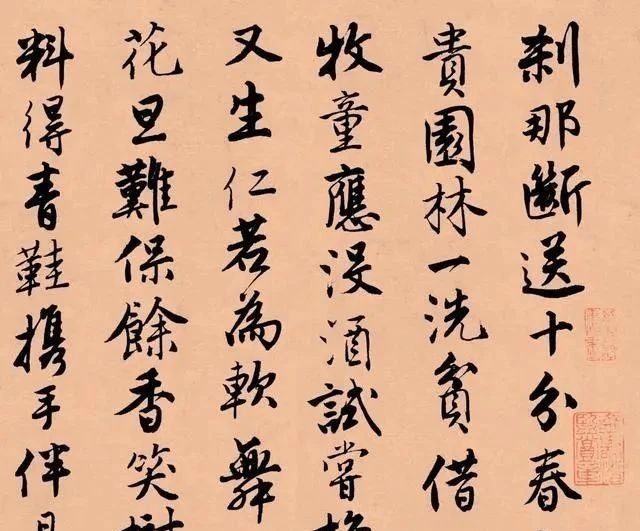 刹那斷送十分春
貴園林一洗貧借
牧童應没酒試嘗
又生仁若為軟舞
花旦難保餘香笑
料得青鞋携手伴